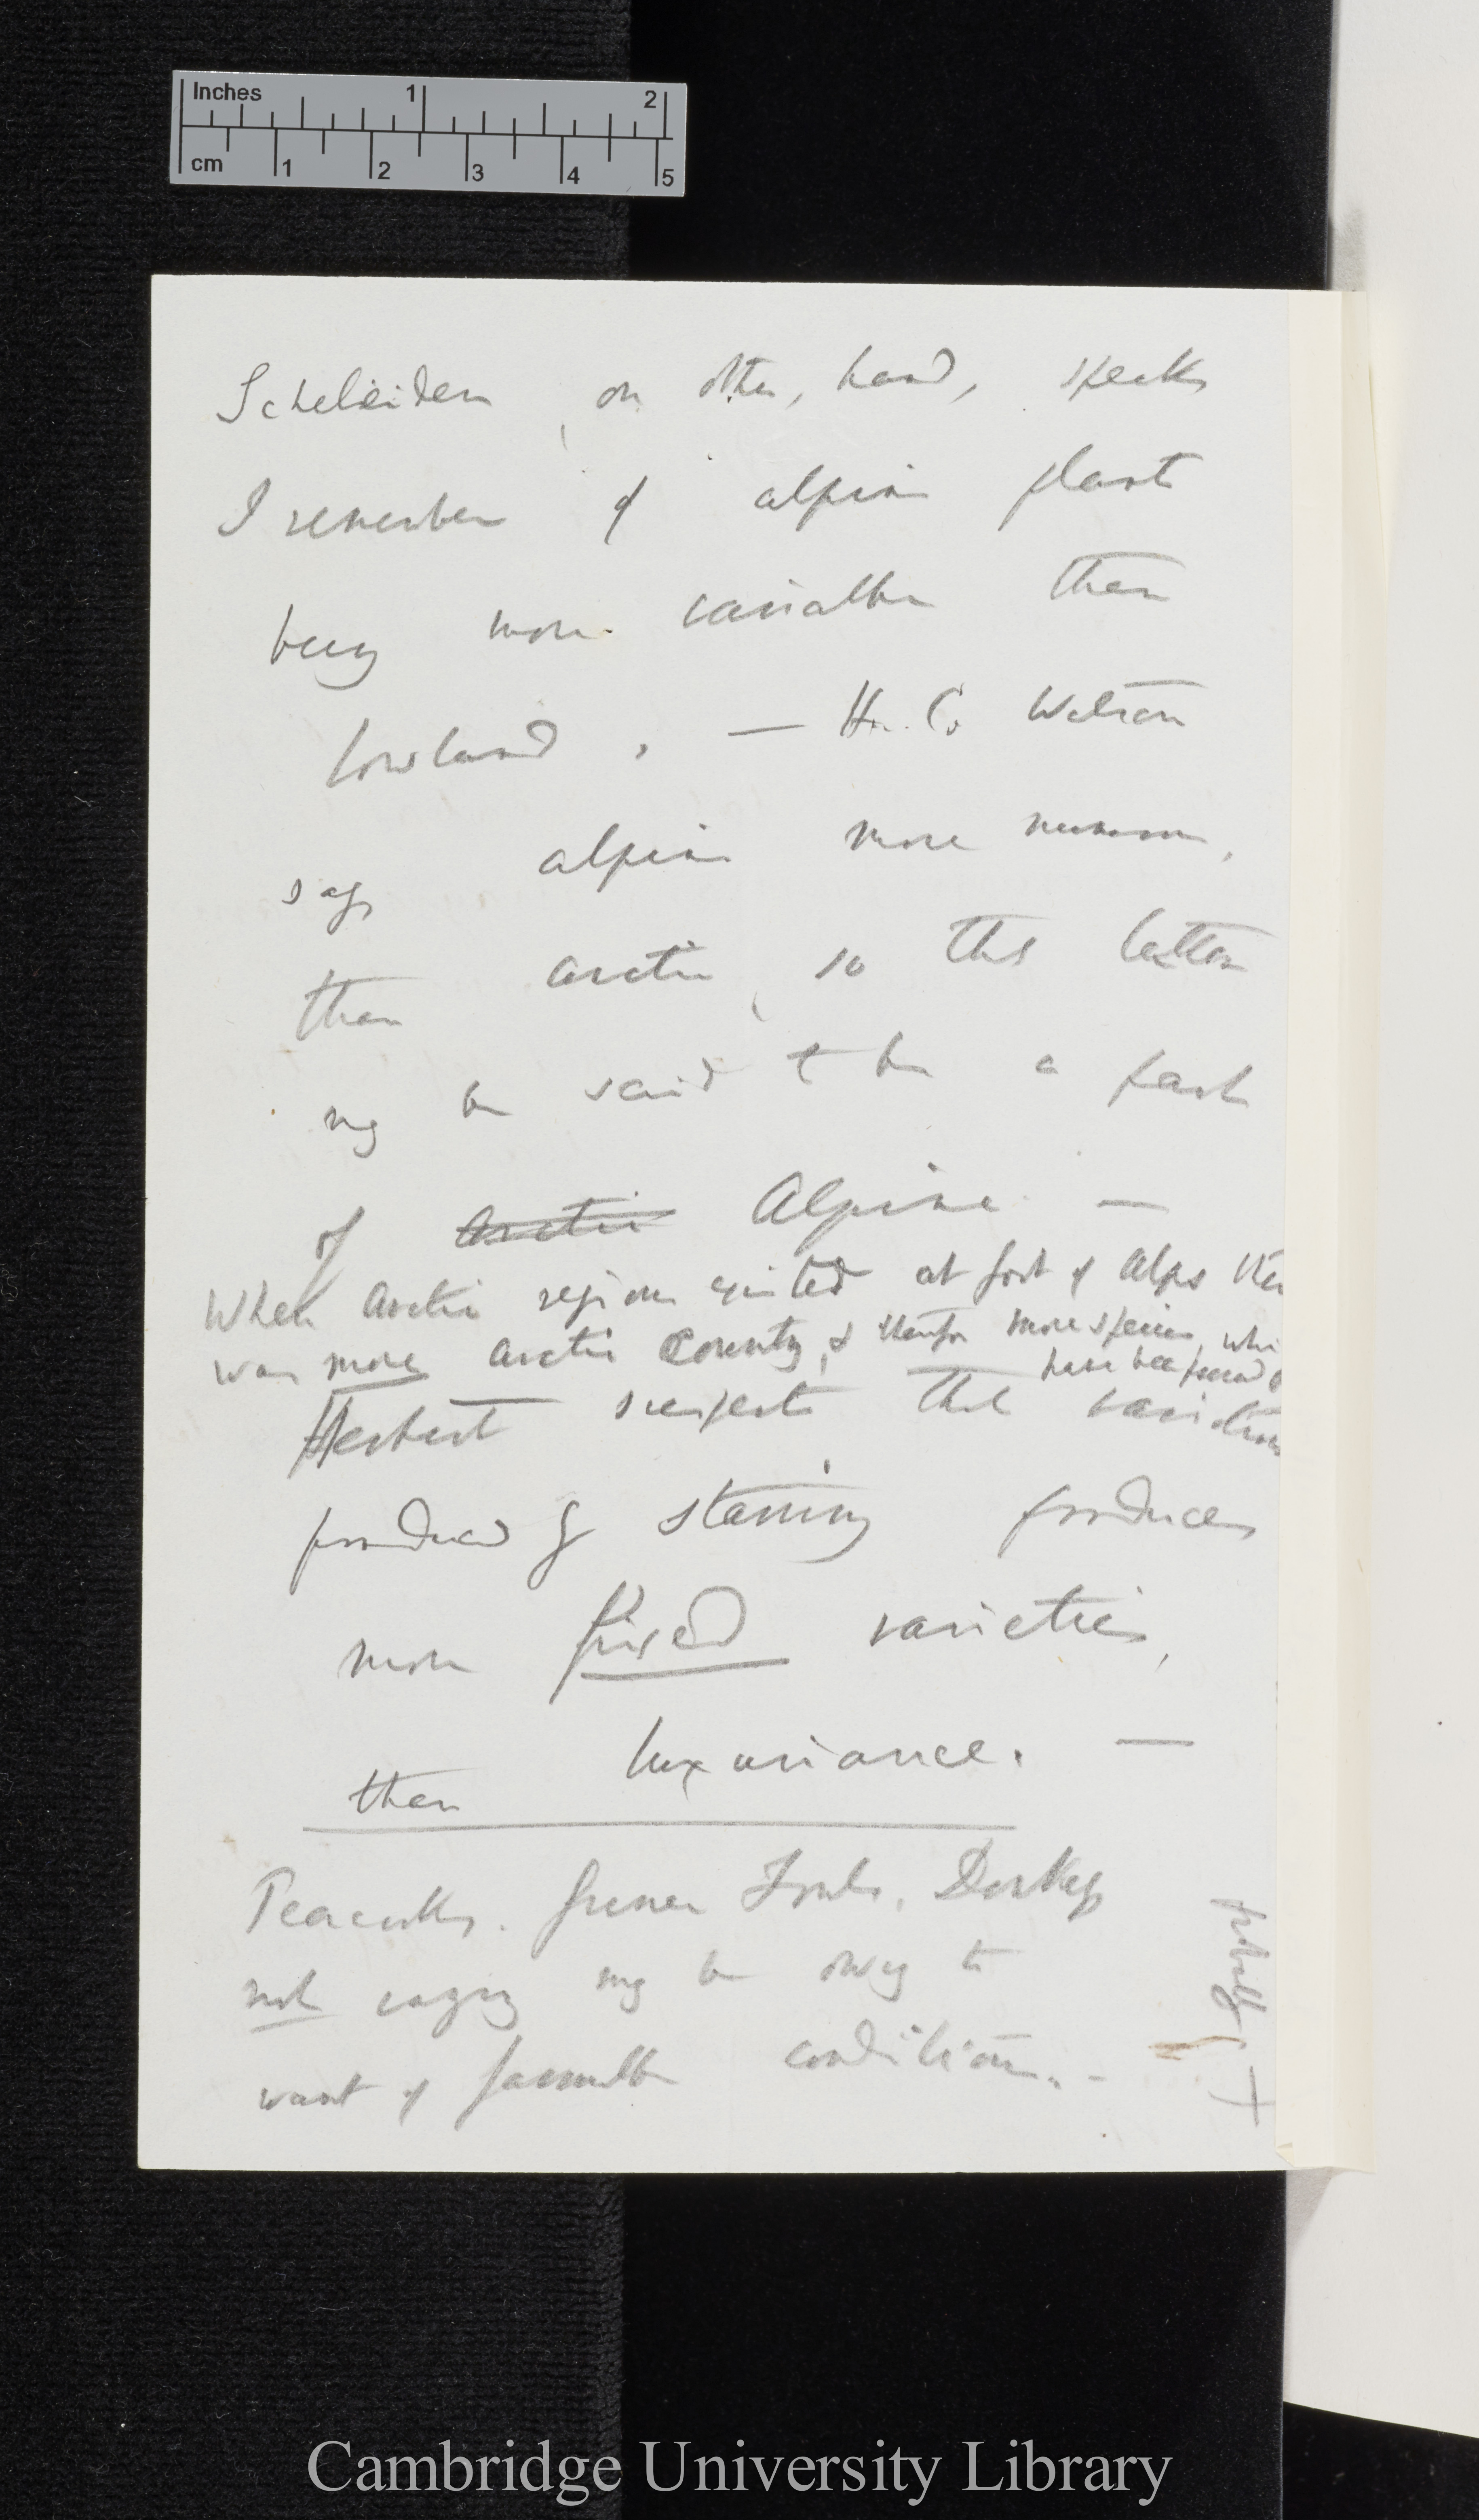 Inches 1 2
cm 1 2 3 4 5
Scheleiden, on other, hand, speaks
I remember of alpine plants
being more variable than
lowland, — H. C. Watson
says alpine more numerous,
than arctic, so that latter
may be said to be a part
of Arctic Alpine —
When Arctic region existed at foot of Alps there
was more arctic country, & therefore more species, whi
have been found
Herbert suspects that variations
produced by starving produces
more fixed varieties,
than luxuriance. —
Peacocks. Guinea Fowls, Donkeys
not varying may be owing to
want of favourable conditions. -
probably
Cambridge University Library